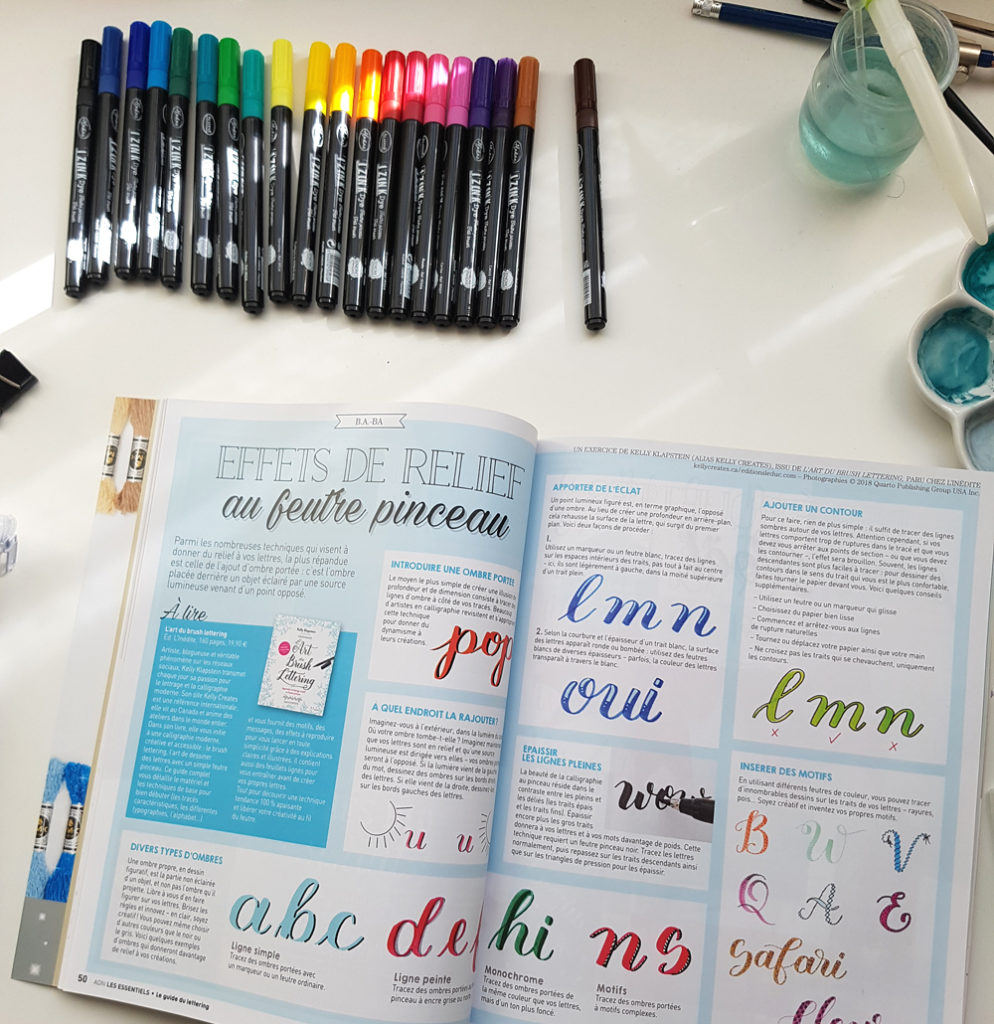 IZINK Dye
B.A.-BA
EFFETS DE RELIEF
au feutre pinceau
Parmi les nombreuses techniques qui visent à
donner du relief à vos lettres, la plus répandue
est celle de l'ajout d'ombre portée : c'est l'ombre
placée derrière un objet éclairé par une source
lumineuse venant d'un point opposé.
À lire
L'art du brush lettering
Éd. L'Inédite, 160 pages, 19,90 €
Artiste, blogueuse et véritable
phénomène sur les réseaux
sociaux, Kelly Klapstein transmet
chaque jour sa passion pour
le lettrage et la calligraphie
moderne. Son site Kelly Creates
est une référence internationale
elle vit au Canada et anime des
ateliers dans le monde entier.
Dans son livre, elle vous initie
à une calligraphie moderne,
créative et accessible : le brush
lettering, l'art de dessiner
des lettres avec un simple feutre
pinceau. Ce guide complet
vous détaille le matériel et
les techniques de base pour
bien débuter (les tracés
caractéristiques, les différentes
typographies, l'alphabet...)
Art
Brush
Lettering
et vous fournit des motifs, des
messages, des effets à reproduire
pour vous lancer en toute
simplicité grâce à des explications
claires et illustrées. Il contient
aussi des feuilles lignes pour
vous entraîner avant de créer
vos propres lettres.
Tout pour découvrir une technique
tendance 100 % apaisante
et libérer votre créativité au fil
du feutre.
INTRODUIRE UNE OMBRE PORTÉE
Le moyen le plus simple de créer une illu
profondeur et de dimension consiste à tracer
lignes d'ombre à côté de vos tracés. Beaucoup
d'artistes en calligraphie revisitent et s'approprient
cette technique
pour donner du
dynamisme à
leurs créations.
pop
A QUEL ENDROIT LA RAJOUTER ?
Imaginez-vous à l'extérieur, dans la lumière
Où votre ombre tombe-t-elle ? Imaginez maintenant
que vos lettres sont en relief et qu'une source
lumineuse est dirigée vers elles – vos ombres
seront à l'opposé. Si la lumière vient de la gauche
du mot, dessinez des ombres sur les bords
des lettres. Si elle vient de la droite, dessinez
sur les bords gauches des lettres.
u u
DIVERS TYPES D'OMBRES
Une ombre propre, en dessin
figuratif, est la partie non éclairée
d'un objet, et non pas l'ombre qu'il
projette. Libre à vous d'en faire
figurer sur vos lettres. Brisez les
règles et innovez – en clair, soyez
créatif ! Vous pouvez même choisir
d'autres couleurs que le noir ou
le gris. Voici quelques exemples
d'ombres qui donneront davantage
de relief à vos créations.
abc
Ligne simple
Tracez des ombres portées avec
un marqueur ou un feutre ordinaire.
de
Ligne peinte
Tracez des ombres portées au
pinceau à encre grise ou noire
50 ADN LES ESSENTIELS • Le guide du lettering
UN EXERCICE DE KELLY KLAPSTEIN (ALIAS KELLY CREATES), ISSU DE L'ART DU BRUSH LETTERING, PARU CHEZ L'INÉDITE
kellycreates.ca/editionsleduc.com – Photographies © 2018 Quarto Publishing Group USA Inc.
APPORTER DE L'ÉCLAT
Un point lumineux figuré est, en terme graphique, l'opposé
d'une ombre. Au lieu de créer une profondeur en arrière-plan,
cela rehausse la surface de la lettre, qui surgit du premier
plan. Voici deux façons de procéder :
1.
Utilisez un marqueur ou un feutre blanc, tracez des lignes
sur les espaces intérieurs des traits, pas tout à fait au centre
– ici, ils sont légèrement à gauche, dans la moitié supérieure
d'un trait plein.
lmn
2. Selon la courbure et l'épaisseur d'un trait blanc, la surface
des lettres apparaît ronde ou bombée : utilisez des feutres
blancs de diverses épaisseurs – parfois, la couleur des lettres
transparaît à travers le blanc.
oui
ÉPAISSIR
LES LIGNES PLEINES
La beauté de la calligraphie
au pinceau réside dans le
contraste entre les pleins et
les déliés (les traits épais
et les traits fins). Épaissir
encore plus les gros traits
donnera à vos lettres et à vos mots davantage de poids. Cette
technique requiert un feutre pinceau noir. Tracez les lettres
normalement, puis repassez sur les traits descendants ainsi
que sur les triangles de pression pour les épaissir.
wow
hi
Monochrome
Tracez des ombres portées de
la même couleur que vos lettres,
mais d'un ton plus foncé.
ns
Motifs
Tracez des ombres portées
à motifs complexes.
AJOUTER UN CONTOUR
Pour ce faire, rien de plus simple : il suffit de tracer des lignes
sombres autour de vos lettres. Attention cependant, si vos
lettres comportent trop de ruptures dans le tracé et que vous
devez vous arrêter aux points de section – ou que vous devez
les contourner –, l'effet sera brouillon. Souvent, les lignes
descendantes sont plus faciles à tracer : pour dessiner des
contours dans le sens du trait qui vous est le plus confortable,
faites tourner le papier devant vous. Voici quelques conseils
supplémentaires.
– Utilisez un feutre ou un marqueur qui glisse
– Choisissez du papier bien lisse
– Commencez et arrêtez-vous aux lignes
de rupture naturelles
– Tournez ou déplacez votre papier ainsi que votre main
– Ne croisez pas les traits qui se chevauchent, uniquement
les contours.
lmn
INSERER DES MOTIFS
En utilisant différents feutres de couleur, vous pouvez tracer
d'innombrables dessins sur les traits de vos lettres – rayures,
pois... Soyez créatif et inventez vos propres motifs.
B W V
Q A E
safari